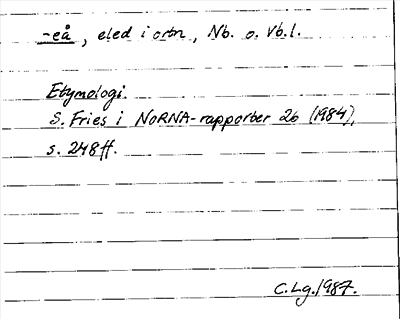 -eå, eled i ortn., Nb. o. Vb.l.
Etymologi.
S. Fries i NORNA-rapporter 26 (1984),
s. 248ff.
C.Lg.1987.